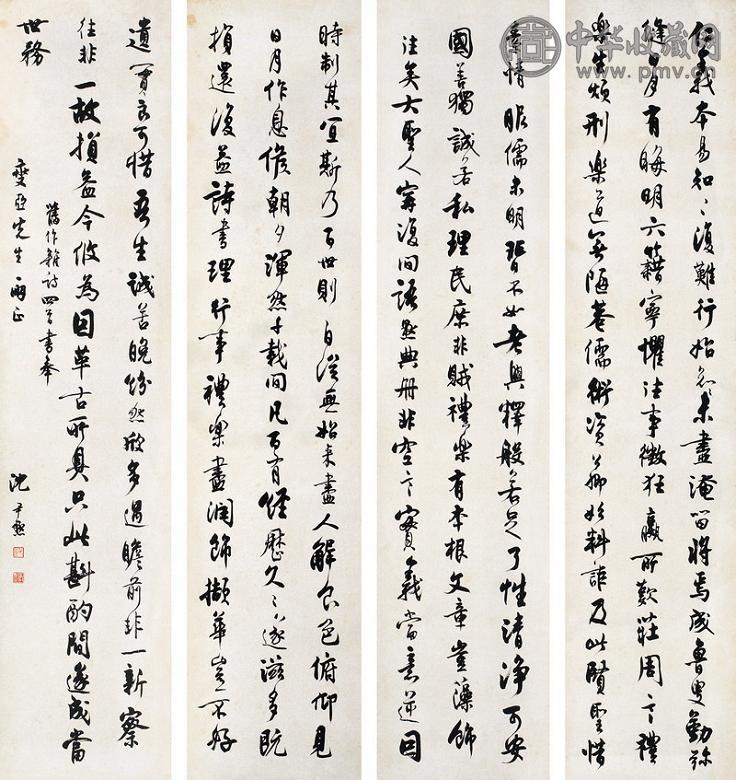 中华收藏网
www.pmv.cn
仁義本易知〻復難行始念未盡淹留將焉成魯叟勤弥
縫月有晦明六籍寧懼往事徵狂嬴所歎莊周言禮
樂生煩刑樂道無陋巷儒術資公卿料誰及此賢聖惜
情眼儒未明皆不如老與釋般若足了性清淨可安
國善獨誠若私理民庶非賊禮樂有本根文章豈藻飾
注矣大聖人寤復間語默典冊非空言實義當意逆因
時制其宜斯乃百世則 自從無始來盡人解食色俯仰見
日月作息候朝夕渾然千載間凡百有經歷久〻遂滋多既
損還復益詩書理行事禮樂盡潤飾擷華豈不好
遺實良可惜 吾生誠苦晚紛然啟多遇瞻前非一新察
往非一故損益今攸為因革古所具只此斟酌間遂成當
世務
舊作雜詩四首書奉
燮亞先生兩正
沈尹默